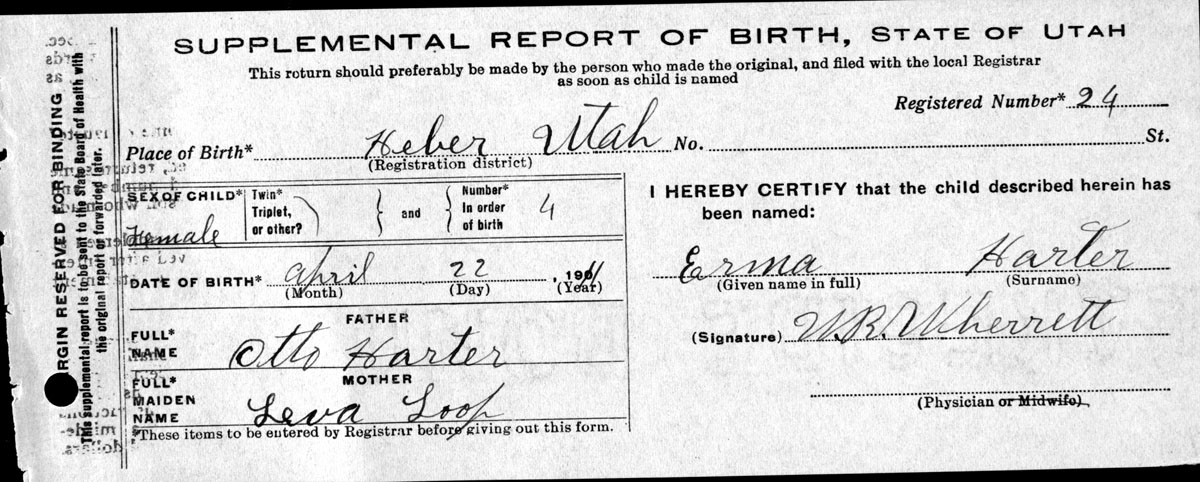 SUPPLEMENTAL REPORT OF BIRTH, STATE OF UTAH
This return should preferably be made by the person who made the original, and filed with the local Registrar
as soon as child is named
Registered Number* 24
Place of Birth* Heber Utah No. St.
(Registration district)
SEX OF CHILD* Female
Twin* Triplet, or other?
and
Number* In order of birth 4
I HEREBY CERTIFY that the child described herein has
been named:
DATE OF BIRTH* April 22, 1911
(Month) (Day) (Year)
Erma Harter
(Given name in full) (Surname)
FATHER
FULL* NAME Otto Harter
(Signature) W.R. Wherrett
MOTHER
FULL* MAIDEN NAME Leva Loop
(Physician or Midwife)
*These items to be entered by Registrar before giving out this form.
RGIN RESERVED FOR BINDING
This supplemental report is to be sent to the State Board of Health with
the original report or forwarded later.